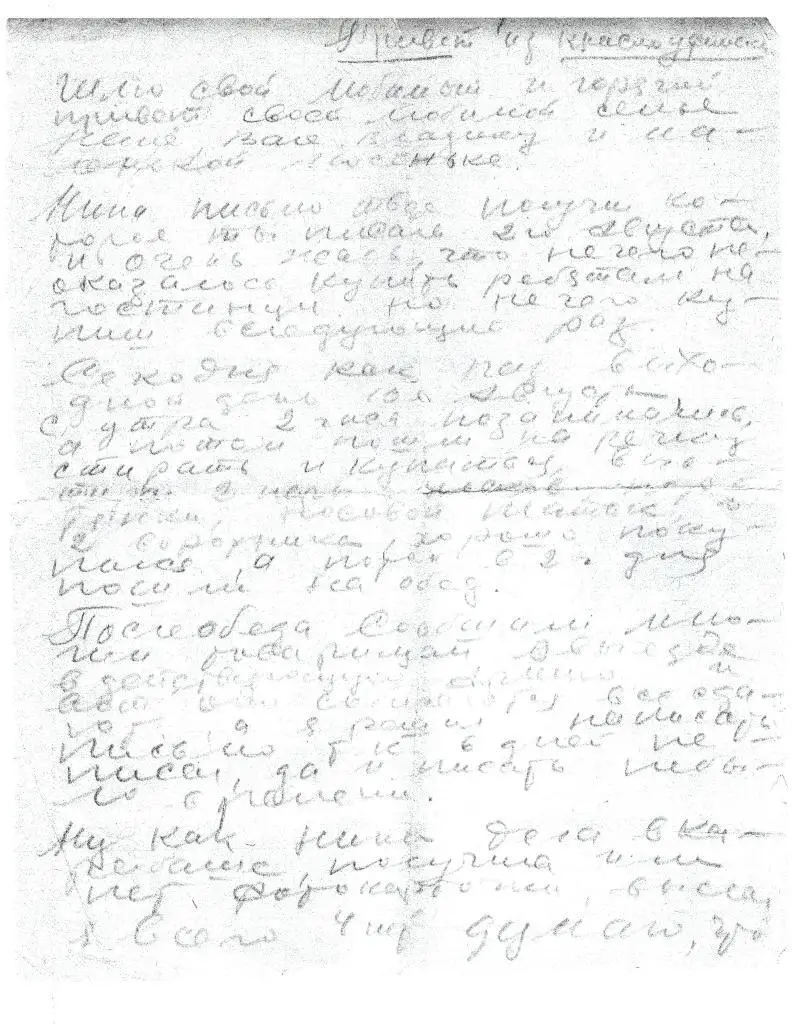 Привет из Красноуфимска
Шлю свой любимый и горячий
привет своей любимой семье
Нине, Вале, Владику и ма-
ленькой
Нина письмо твое получил ко-
торое ты писала 2го августа,
и очень жаль, что нечего не-
оказалось купить ребятам на
гостинцы. но нечего ку-
пиш вследующие раз.
Сегодня как раз выхо-
дной день 10го августа,
с утра 2 часа позанимались,
а потом пошли на речку
стирать и купаться,
носовой платок,
2 хорошо поку-
пался а потом в 2 ч. дня
пошли на обед.
Послеобеда Сообщили мно-
гим товарищам овыезде
в действующую армию и
все сда-
ют, а я решил написать
письмо т.к. 6 дней не
писал, да и писать небы-
ло время.
Ну как Нина дела
получила или
нет фотокарточки, выслал
я всего 4 шт думаю, что